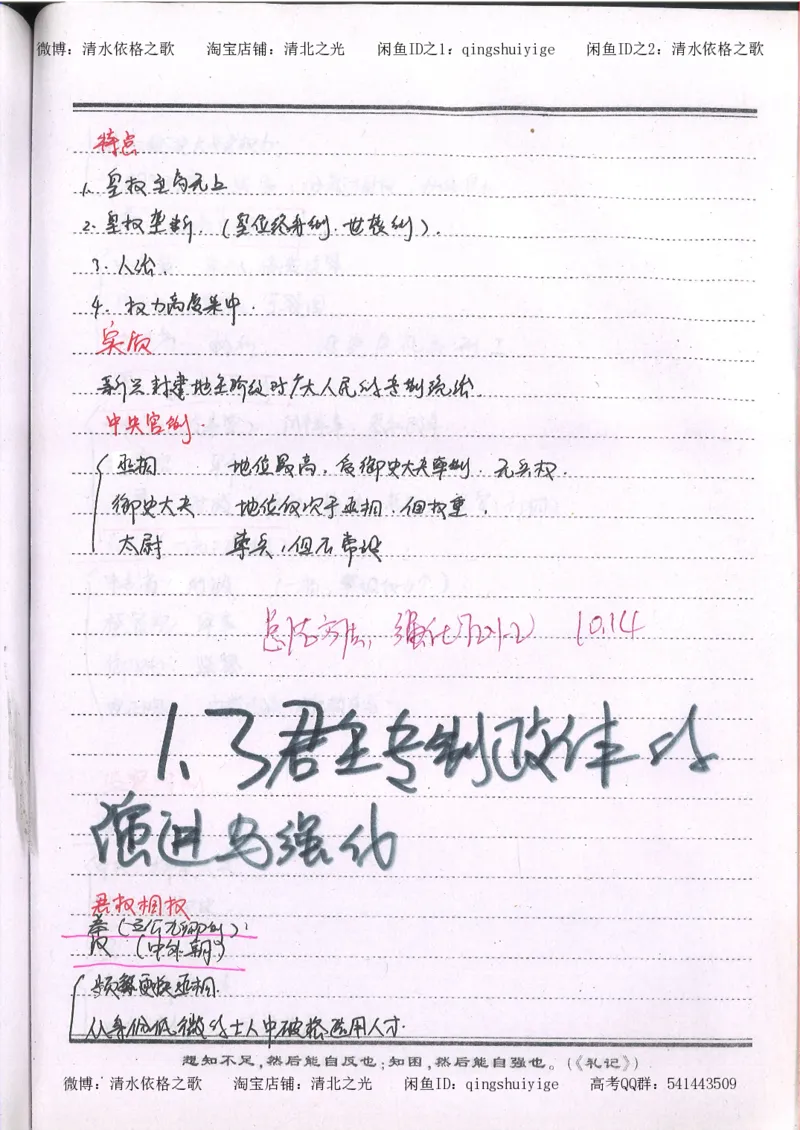 微博：清水依格之歌 淘宝店铺：清北之光 闲鱼ID之1：qingshuiyige 闲鱼ID之2：清水依格之歌
特点
1. 皇权至高无上
2. 皇权垄断.（皇位终身制.世袭制）.
3. 人治.
4. 权力高度集中.
实质
新兴封建地主阶级对广大人民的专制统治.
中央官制.
丞相 地位最高，受御史大夫牵制. 无兵权.
御史大夫 地位仅次于丞相.但权重.
太尉 掌兵，但不常设
10.14
1.3君主专制政体的
演进与强化
君权相权
秦（三公九卿制）.
汉（中外朝）
频繁更换丞相.
从身份低微的士人中破格选用人才.
想知不足，然后能自反也；知困，然后能自强也。（《礼记》）
微博：清水依格之歌 淘宝店铺：清北之光 闲鱼ID：qingshuiyige 高考QQ群：541443509